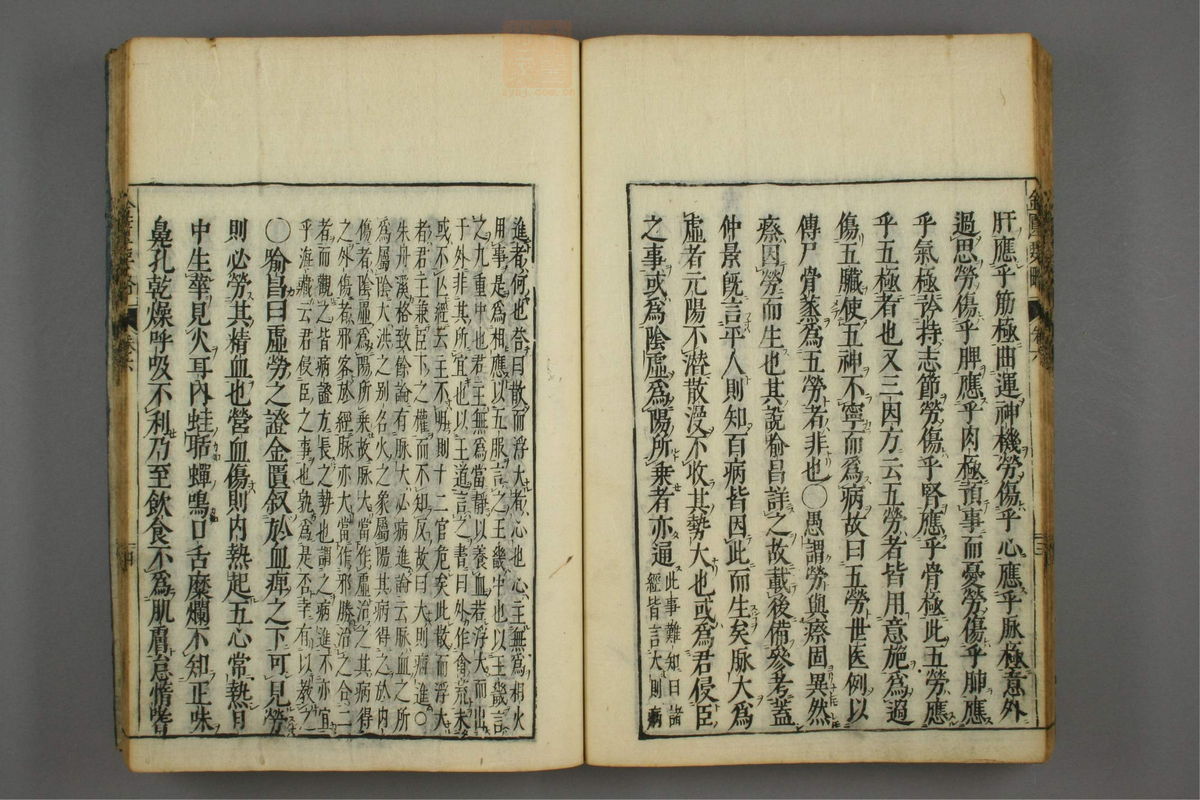 肝應乎筋極曲運神機勞傷乎心應乎脉極意外
過思勞傷乎脾應乎肉極預事而憂勞傷乎肺應
乎氣極矜持志節勞傷乎腎應乎骨極此五勞應
乎五極者也又三因方云五勞者皆用意施爲過
傷五臟使五神不寧而爲病故曰五勞世医例以
傳尸骨蒸爲五勞者非也〇愚謂勞與瘵固異然
瘵因勞而生也其說喻昌詳之故載後備參考蓋
仲景旣言平人則知百病皆因此而生矣脉大爲
虛者元陽不潜散漫不收其勢大也或爲君侵臣
之事或爲陰虛爲陽所乗者亦通
此事難知曰諸
經皆言大則病
進者何也荅曰散而浮大者心也心主無爲相火
用事是爲相應以五服言之王畿中也以王畿言
之九重中也君主無爲當靜以養血若浮大而出
于外非其所宜也以王道言之書曰外作禽荒未
或不亾經云主不明則十二官危矣此散而浮大
者君主兼臣下之權而不知反故曰大則病進〇
朱丹溪格致餘論有脉大必病進論云脉血之所
爲屬陰大洪之别名火之象屬陽其病得之於内
傷者陰虛爲陽所乗故脉大當作虛治之其病得
之外傷者邪客於經脉亦大當作邪勝治之合二
者而觀之皆病證方長之勢也謂之病進不亦宜
乎海藏云君侵臣之事也孰爲是否幸有以敎之
〇喻昌曰虛勞之證金匱叙於血痺之下可見勞
則必勞其精血也營血傷則内熱起五心常熱目
中生華見火耳內蛙聒蟬鳴口舌糜爛不知正味
鼻孔乾燥呼吸不利乃至飲食不爲肌膚怠惰嗜
卷六
三
卷六
四